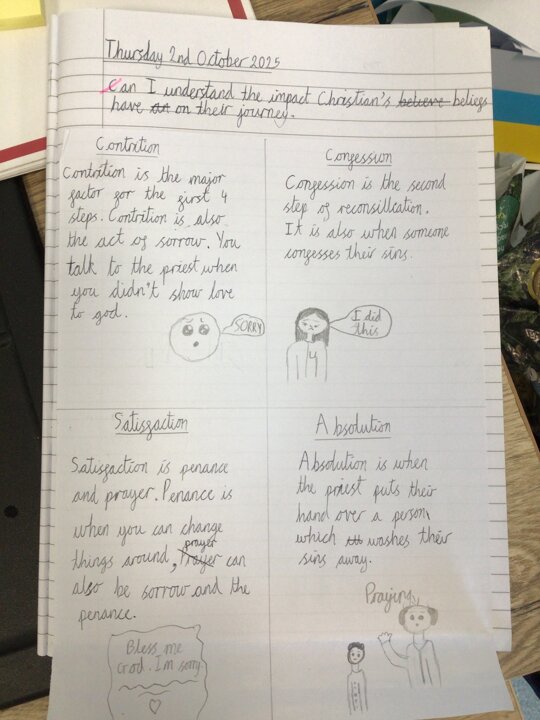 Thursday 2nd October 2025
Can I understand the impact Christian's believe beliefs
have on their journey.
Contrition
Contrition is the major
factor for the first 4
steps. Contrition is also
the act of sorrow. You
talk to the priest when
you didn't show love
to god.
SORRY
Confession
Confession is the second
step of reconsillcation.
It is also when someone
confesses their sins.
I did
this
Satisfaction
Satisfaction is penance
and prayer. Penance is
when you can change
things around, Prayer prayer can
also be sorrow and the
penance.
Bless me
God. I'm sorry
Absolution
Absolution is when
the priest puts their
hand over a person,
which washes their
sins away.
Praying